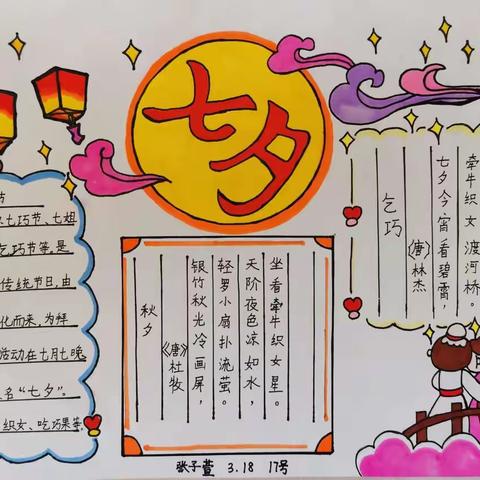 七夕
节
七巧节、七姐
乞巧节等。是
传统节日,由
化而来,为拜
活动在七月七晚
名“七夕”。
织女、吃巧果等
秋夕
《唐》杜牧
银竹秋光冷画屏，
轻罗小扇扑流萤。
天阶夜色凉如水，
坐看牵牛织女星。
乞巧
〔唐〕林杰
七夕今宵看碧霄，
牵牛织女渡河桥。
张子萱 3.18 17号